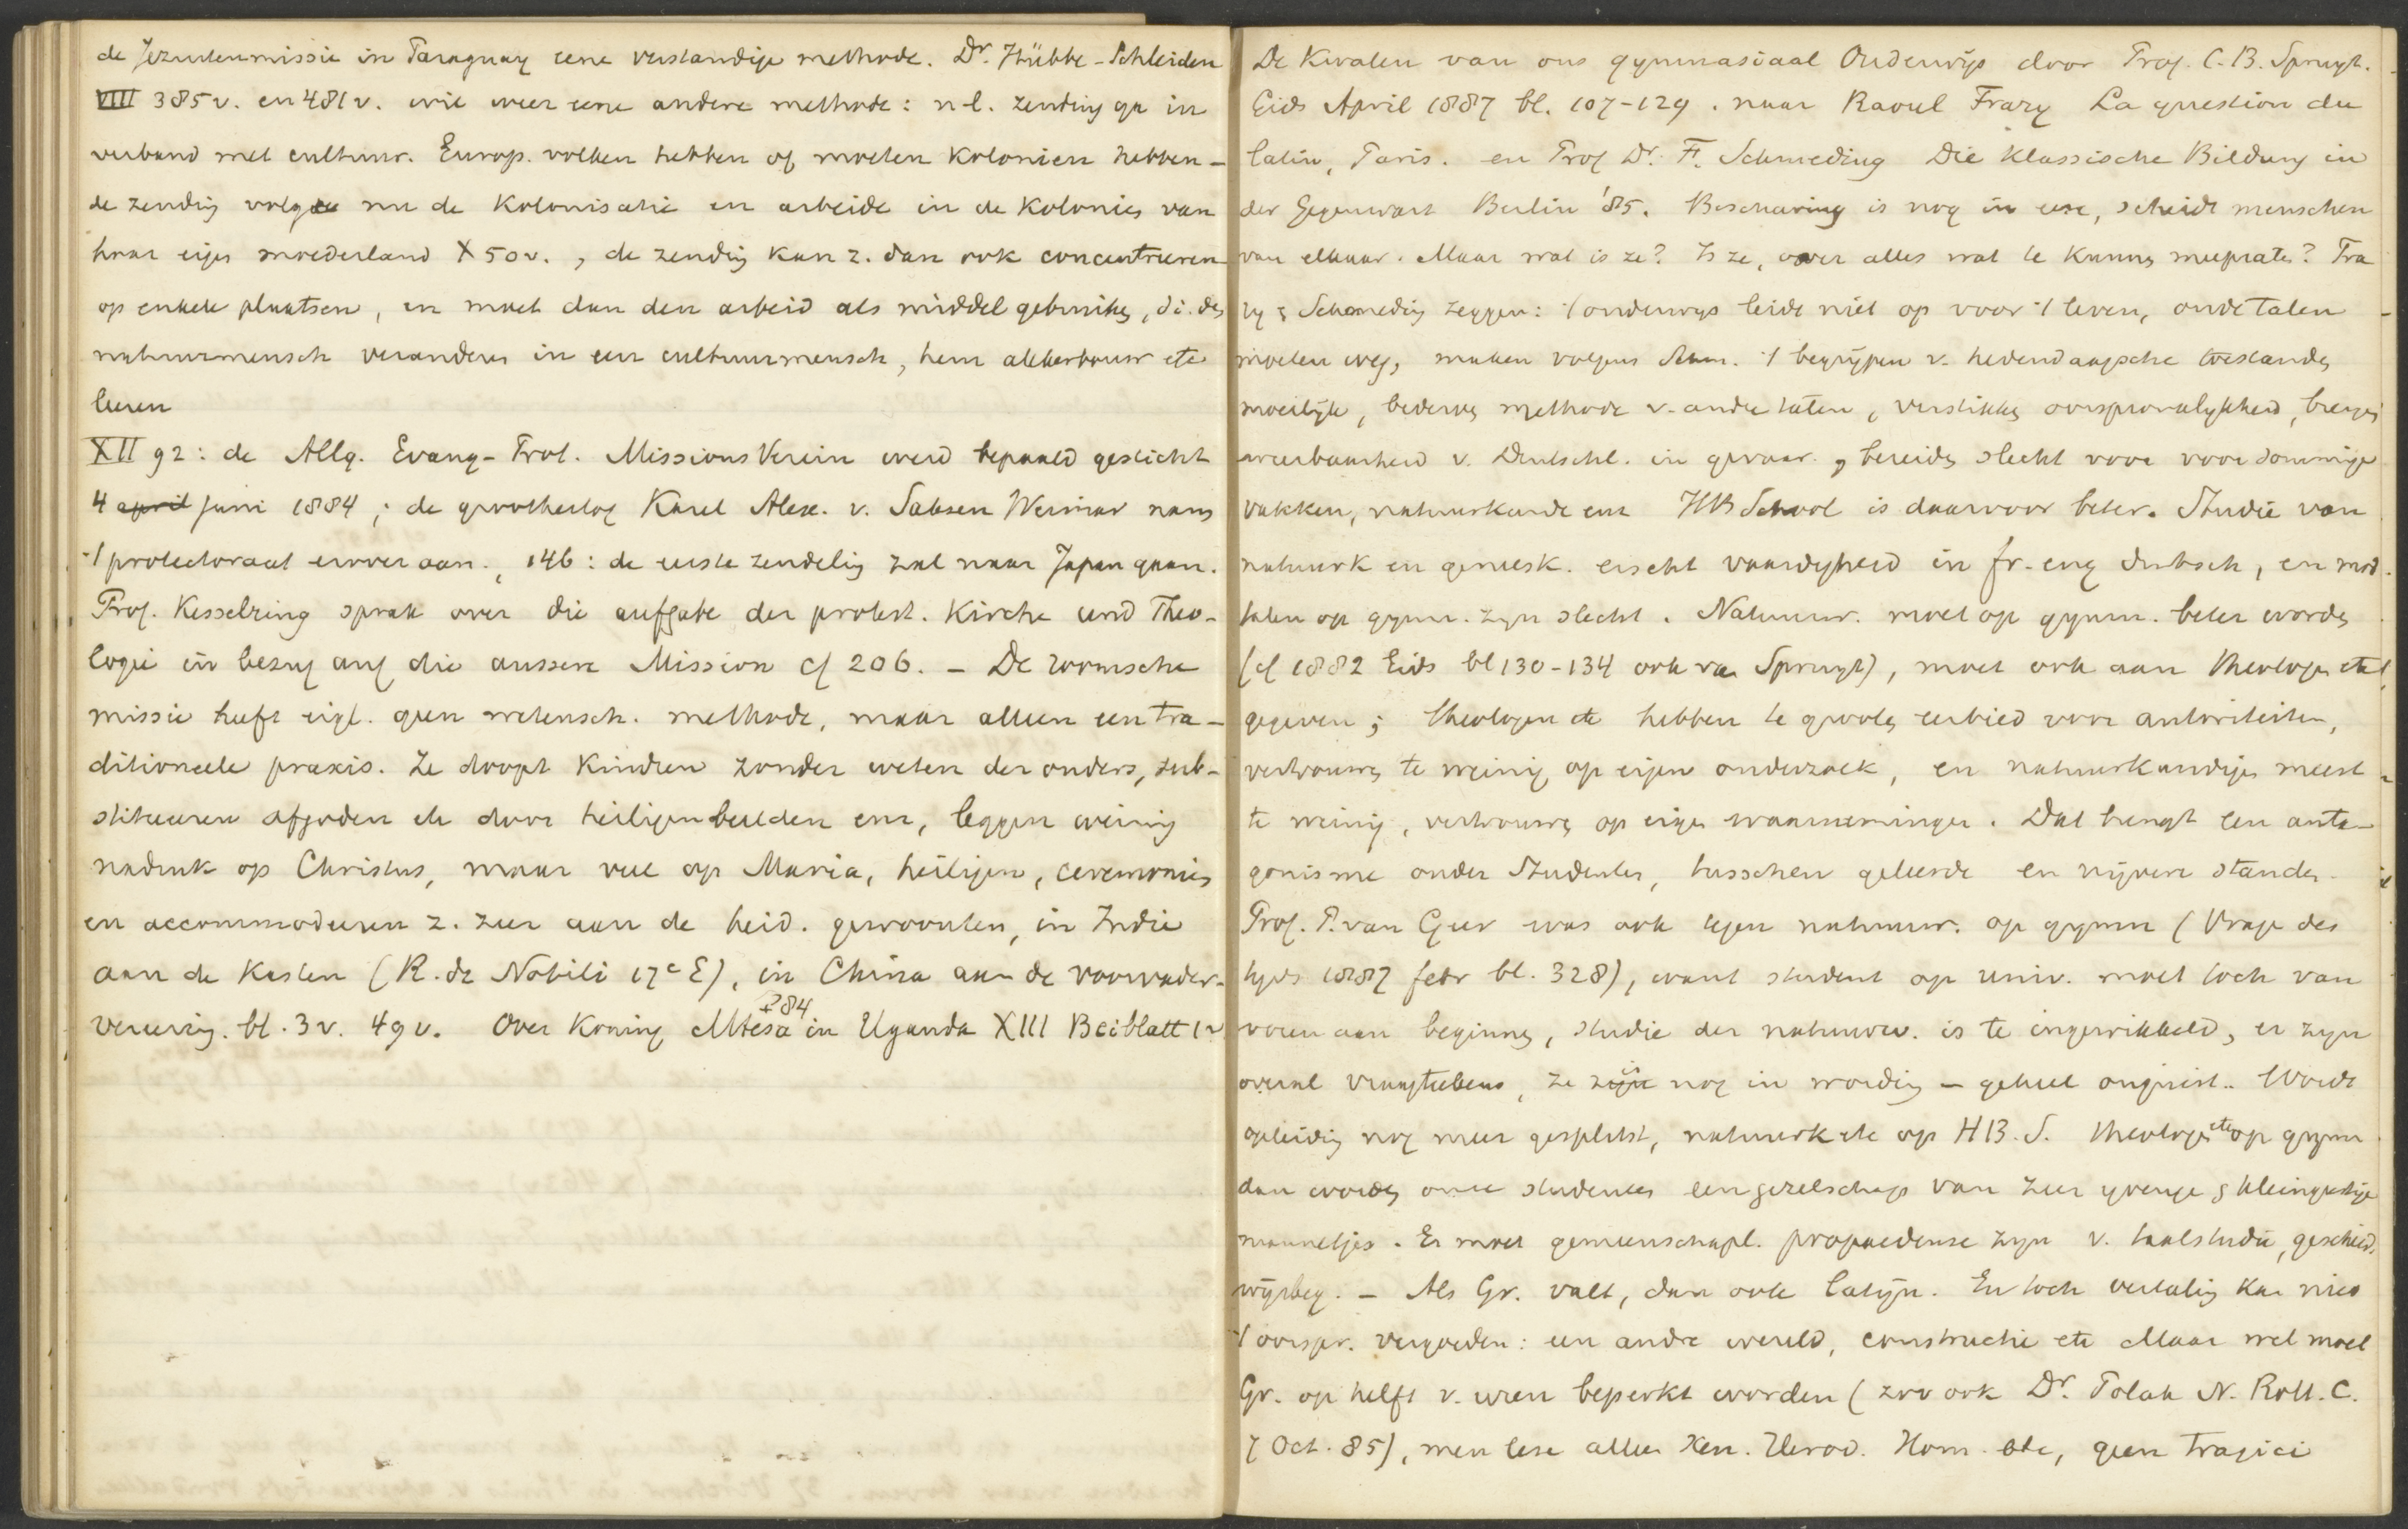 de Jezuitenmissie in Paraguay eene verstandige methode. Dr. Hübbe-Schleiden
VIIII 385v. en 481v. wil weer eene andere methode: n-l. zending ga in
verband met cultuur. Europ. volken hebben of moeten Kolonien hebben -
de zending volge nu de Kolonisatie en arbeide in de Kolonies van
haar eigen moederland X 50v., de zending kan z. dan ook concentreeren
op enkele plaatsen, en moet dan den arbeid als middel gebruiken, d.i. den
natuurmensch veranderen in een cultuurmensch, hem akkerbouw etc
leeren
XII 92: de Allg. Evang-Prot. Missions Verein werd bepaald gesticht
4 april juni 1884; de groothertog Karel Alex. v. Saksen Weimar nam
't protectoraat erover aan., 146: de eerste zendeling zal naar Japan gaan.
Prof. Kesselring sprak over die aufgabe der protest. Kirche und Theo-
logie in bezug auf die aussere Mission cf 206. - De roomsche
missie heeft eigl. geen wetensch. methode, maar alleen een tra-
ditioneele praxis. Ze doopt Kindren zonder weten der ouders, sub-
stitueeren afgoden etc door heiligenbeelden enz, leggen weinig
nadruk op Christus, maar veel op Maria, heiligen, ceremonies
en accommodeeren z. zeer aan de heid. gewoonten, in Indie
aan de Kasten (R. de Nobili 17e E), in China aan de voorvader-
vereering. bl. 3v. 49v. Over Koning Mtesa † 84 in Uganda XIII Beiblatt 1v
De Kwalen van ons gymnasiaal Onderwijs door Prof. C.B. Spruyt.
Gids April 1887 bl. 107-129. naar Raoul Frary La question du
latin, Paris. en Prof Dr. F. Schmeding Die Klassische Bildung in
der Gegenwart Berlin '85. Beschaving is nog in eere, scheidt menschen
van elkaar. Maar wat is ze? Is ze, over alles wat te kunnen meepraten? Fra
ry & Schmeding zeggen: 't onderwys leidt niet op voor 't leven, oude talen
moeten weg, maken volgens Schm. 't begrijpen v. hedendaagsche toestanden
moeilijk, bederven methode v. andre talen, verstikken oorspronkelykheid, brengen
weerbaarheid v. Deutschl. in gevaar, bereiden slecht voor voor sommige
vakken, natuurkunde enz HB School is daarvoor beter. Studie van
natuurk en geneesk. eischt vaardigheid in fr. eng duitsch, en mod.
talen op gymn. zyn slecht. Natuurw. moet op gymn. beter worden
(cf 1882 Gids bl 130-134 ook van Spruyt), moet ook aan theologen etc
gegeven; theologen etc hebben te grooten eerbied voor autoriteiten,
vertrouwen te weinig op eigen onderzoek, en natuurkundigen meest
te weinig, vertrouwen op eigen waarnemingen. Dat brengt een anta-
gonisme onder Studenten, tusschen geleerde en nijvere standen.
Prof. P. van Geer was ook tegen natuurw. op gymn (Vrage des
tyds 1887 febr bl. 328), want student op univ. moet toch van
voren aan beginnen, studie der natuurw. is te ingewikkeld, er zyn
overal vraagteekens, ze zijn nog in wording - geheel onjuist.. Wordt
opleiding nog meer gesplitst, natuurk etc op HB.S. theologen etc op gymn
dan worden onze studenten een gezelschap van zeer yverige & kleingeestige
mannetjes. Er moet gemeenschapl. propaedeuse zyn v. taalstudie, geschied.
wijsbeg. - Als Gr. valt, dan ook latijn. En toch vertaling kan niet
't oorspr. vergoeden: een andre wereld, constructie etc Maar wel moet
Gr. op helft v. uren beperkt worden (zoo ook Dr. Polak N. Rott. C.
7 Oct. 85), men leze alleen Xen. Herod. Hom. etc, geen tragici